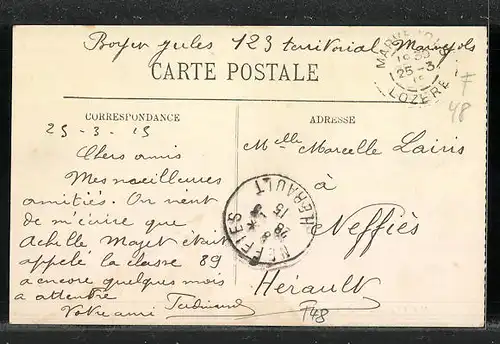 Boyer Jules 123 territorial Marvejols
CARTE POSTALE
MARVEJOLS
1830
25-3
15
LOZERE
F
48
CORRESPONDANCE
ADRESSE
25-3-15
Chers amis
Mes meilleures
amitiés. On vient
de m'écrire que
Achille Maget étant
appelé la classe 89
a encore quelques mois
a attendre
Votre ami Ferdinand
Melle Marcelle
à
Neffiès
Hérault
NEFFIES
28
15
HERAULT
T48